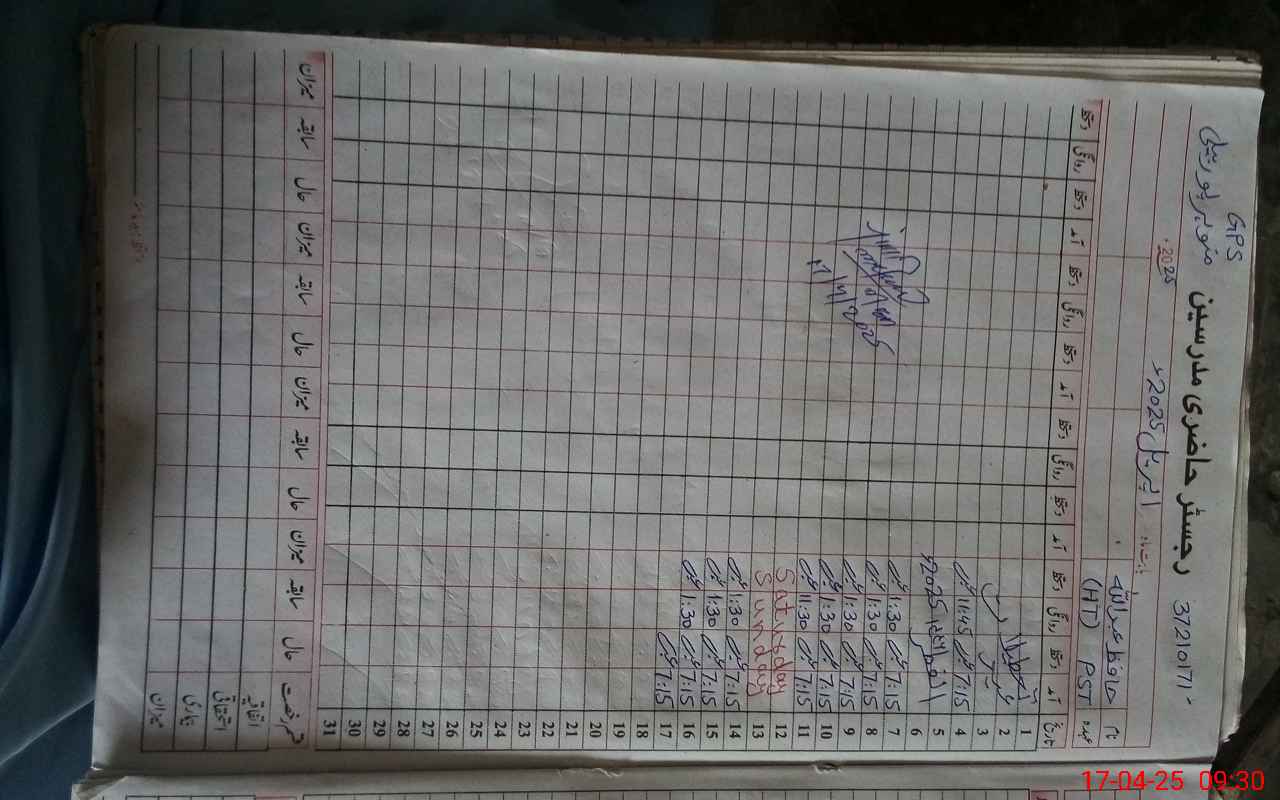 GPS
رجسٹر حاضری مدرسین
37210171
2025
بابت ماہ اپریل 2025ء
نام حافظ عبداللہ
عہدہ PST (HT)
تاریخ آمد دستخط روانگی دستخط آمد دستخط روانگی دستخط آمد دستخط روانگی دستخط آمد دستخط روانگی دستخط
1
2
3
4 7:15 11:45
5 2025
6
7 7:15 1:30
8 7:15 1:30
9 7:15 1:30
10 7:15 1:30
11 7:15 11:30
12 Saturday
13 Sunday
14 7:15 1:30
15 7:15 1:30
16 7:15 1:30
17 7:15
18
19
20
21
22
23
24
25
26
27
28
29
30
31
قسم رخصت حال سابقہ میزان حال سابقہ میزان حال سابقہ میزان حال سابقہ میزان
اتفاقیہ
استحقاقی
بیماری
میزان
17/4/2025
17-04-25 09:30